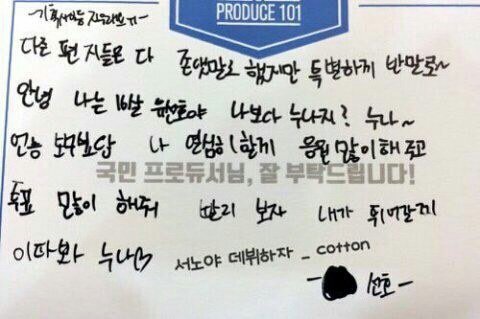 PRODUCE 101
다른 편지들은 다 존댓말로 했지만 특별하게 반말로~
안녕 나는 16살 유선호야 나보다 누나지? 누나~
연습 나 열심히 할게 응원 많이 해주고
국민 프로듀서님, 잘 부탁드립니다!
투표 많이 해줘 빨리 보자 내가 뛰어갈게
이따봐 누나♡ 서노야 데뷔하자 _ cotton
선호 -